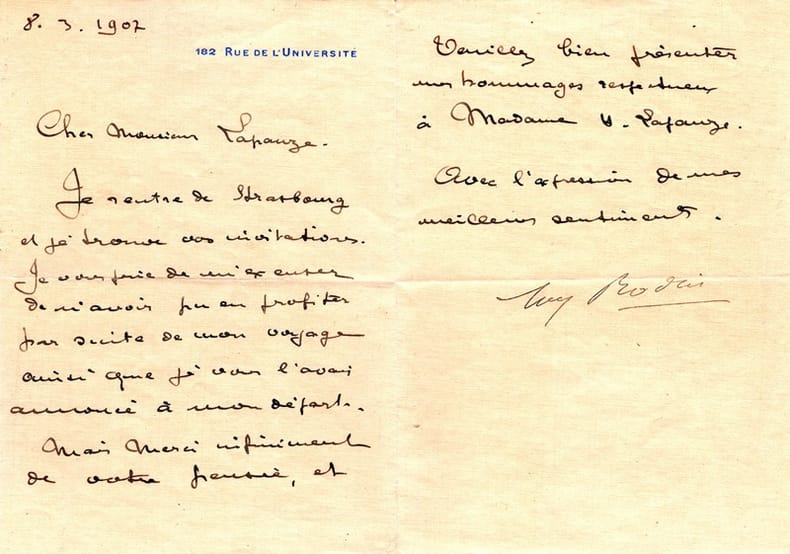 8. 3. 1907
182 RUE DE L'UNIVERSITÉ
Cher Monsieur Lapauze.
Je rentre de Strasbourg
et je trouve vos invitations.
Je vous prie de m'excuser
de n'avoir pu en profiter
par suite de mon voyage
ainsi que je vous l'avais
annoncé à mon départ.
Mais Merci infiniment
de votre pensée, et
Veuillez bien présenter
mes hommages respectueux
à Madame Lapauze.
Avec l'expression de mes
meilleurs sentiments.
Aug Rodin